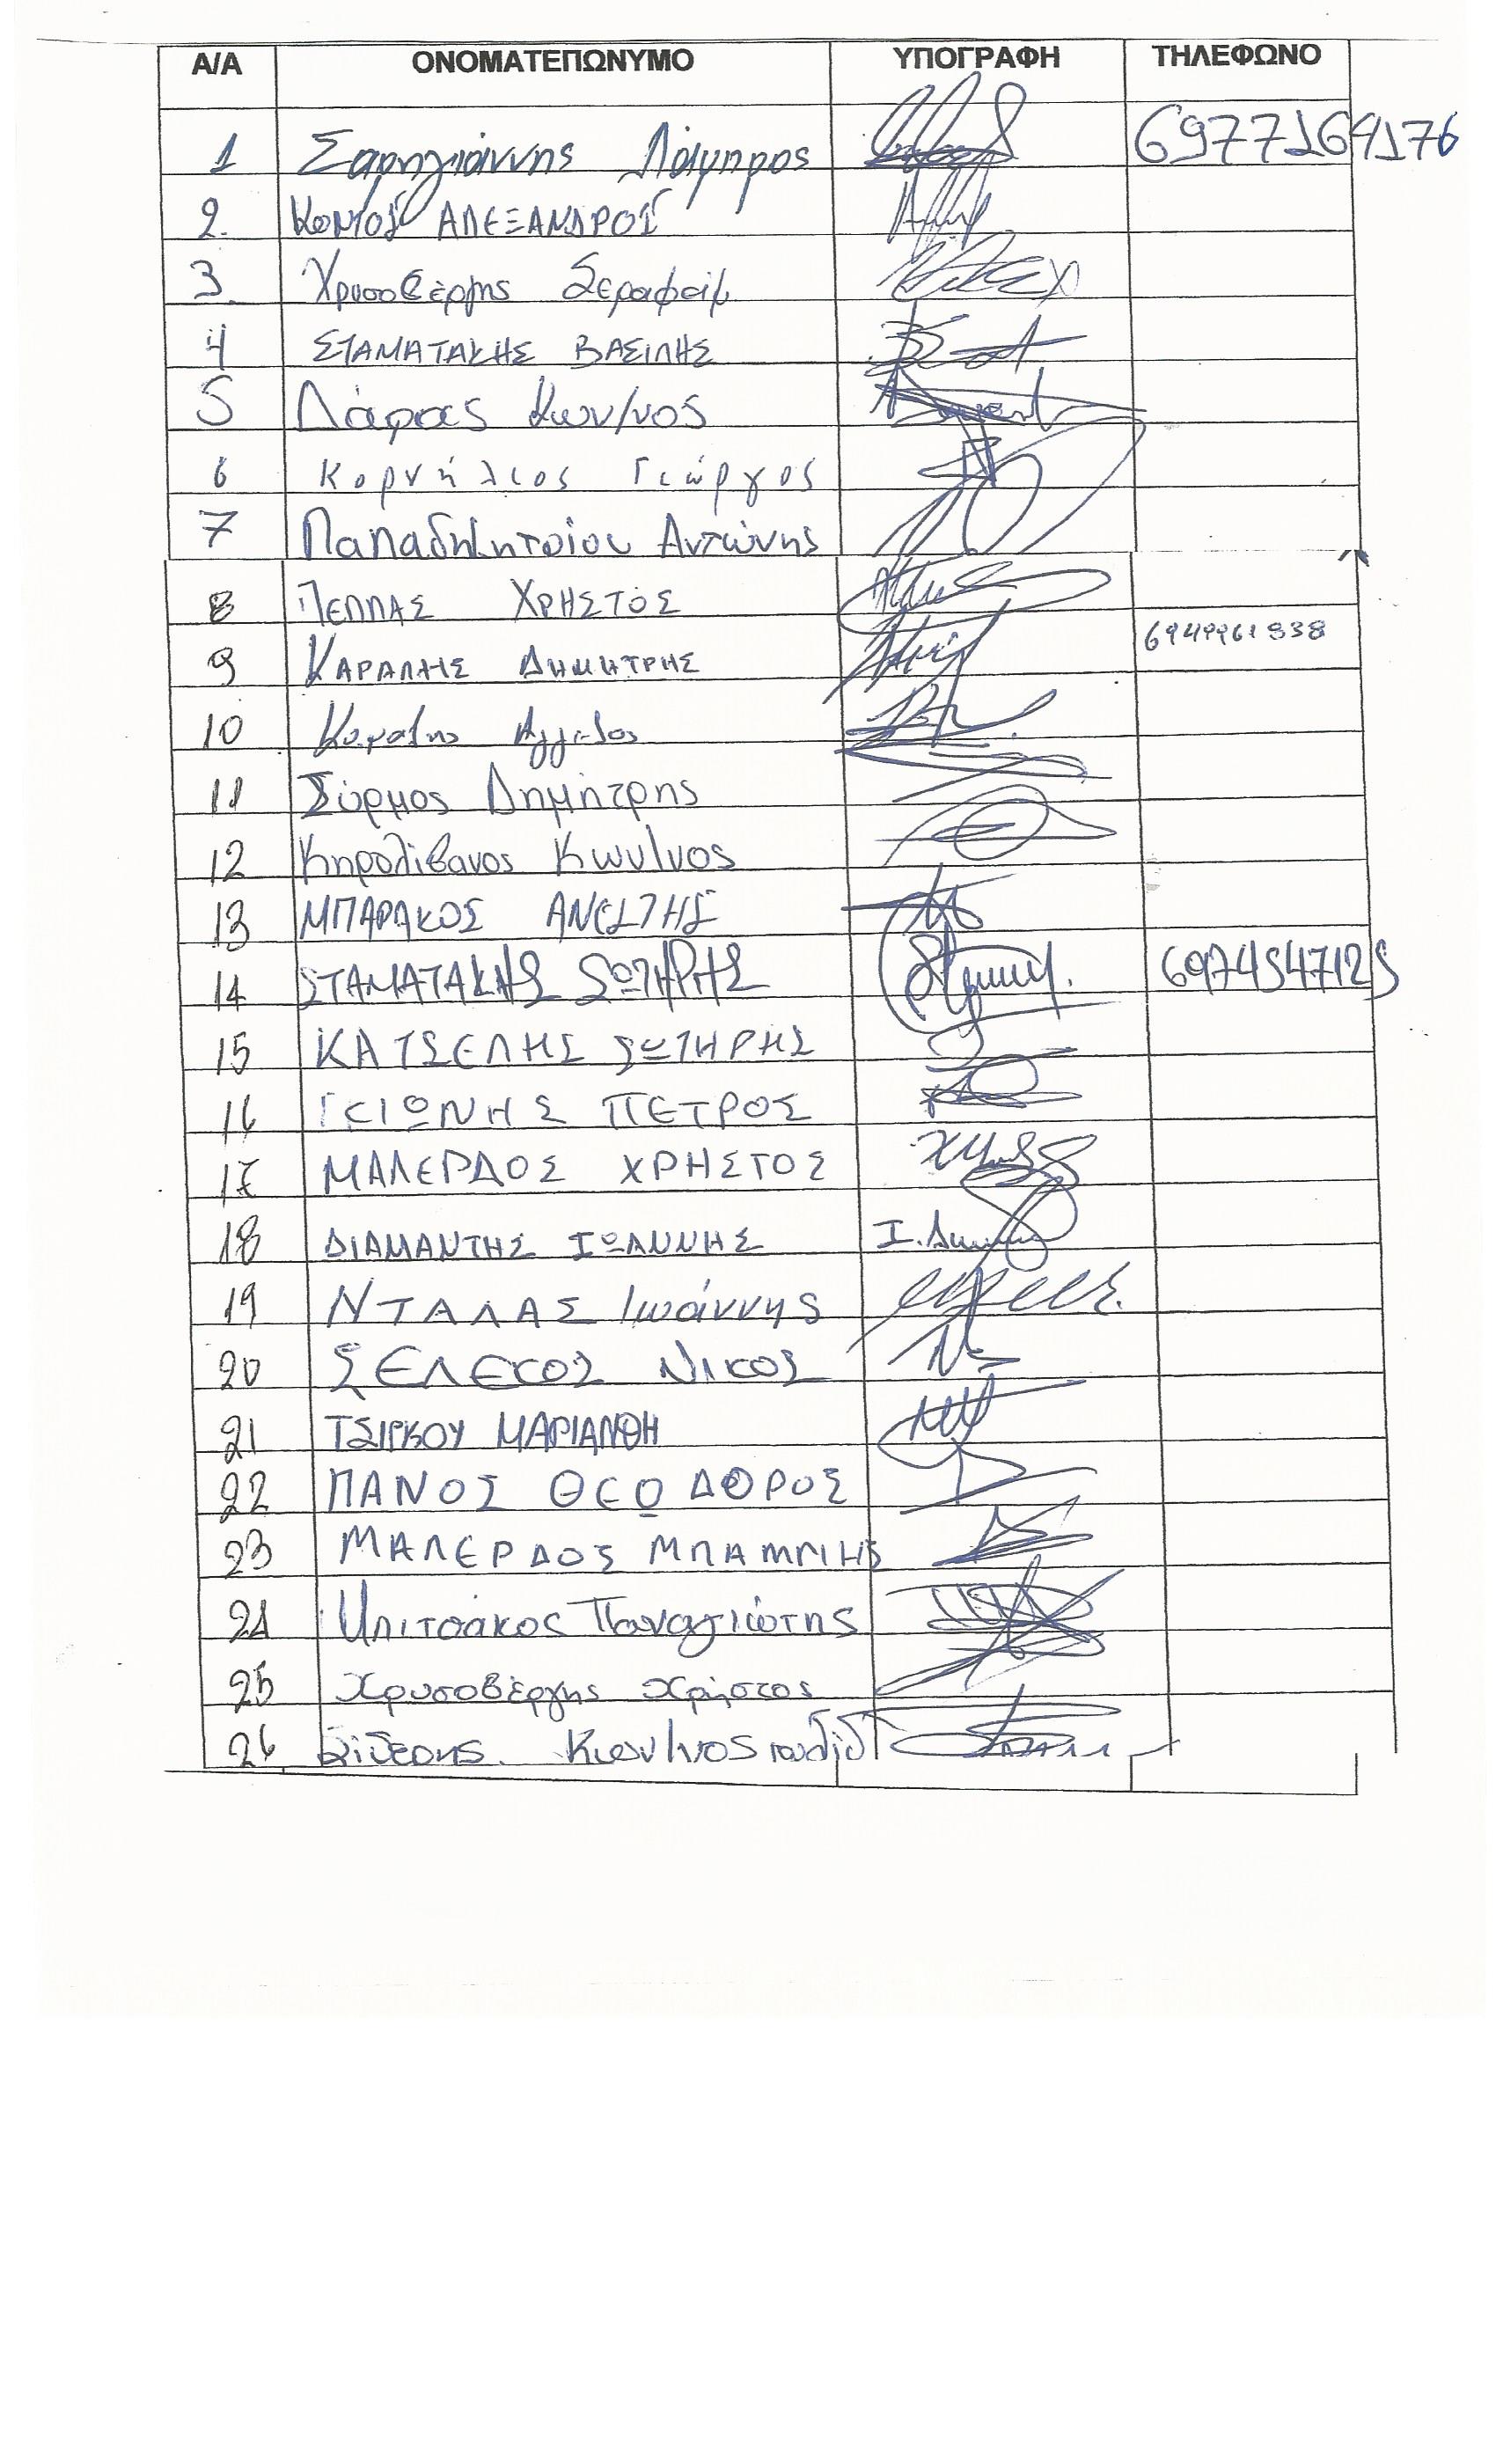 Α/Α ΟΝΟΜΑΤΕΠΩΝΥΜΟ ΥΠΟΓΡΑΦΗ ΤΗΛΕΦΩΝΟ
1 Σαρηγιάννης Λάμπρος 6977164176
2. ΚΟΝΤΟΣ ΑΛΕΞΑΝΔΡΟΣ
3. Χρυσοβέργης Σεραφείμ
4 ΣΤΑΜΑΤΑΚΗΣ ΒΑΣΙΛΗΣ
5 Λάφας Κων/νος
6 Κορνήλιος Γιώργος
7 Παπαδημητρίου Αντώνης
8 ΠΕΠΠΑΣ ΧΡΗΣΤΟΣ
9 ΚΑΡΑΛΗΣ ΔΗΜΗΤΡΗΣ
10 Άγγελος
11 Σύρμος Δημήτρης
12 Κηρολίβανος Κων/νος
13 ΜΠΑΡΑΚΟΣ ΑΝΕΣΤΗΣ
14 ΣΤΑΜΑΤΑΚΗΣ ΣΩΤΗΡΗΣ 6974547125
15 ΚΑΤΣΕΛΗΣ ΣΩΤΗΡΗΣ
16 ΓΚΙΩΝΗΣ ΠΕΤΡΟΣ
17 ΜΑΛΕΡΔΟΣ ΧΡΗΣΤΟΣ
18 ΔΙΑΜΑΝΤΗΣ ΙΩΑΝΝΗΣ
19 ΝΤΑΛΑΣ Ιωάννης
20 ΣΕΛΕΚΟΣ ΝΙΚΟΣ
21 ΤΣΙΡΚΟΥ ΜΑΡΙΑΝΘΗ
22 ΠΑΝΟΣ ΘΕΟΔΩΡΟΣ
23 ΜΑΛΕΡΔΟΣ ΜΠΑΜΠΗΣ
24 Μπιτσάκος Παναγιώτης
25 Χρυσοβέργης Χρήστος
26 Σιδέρης Κων/νος